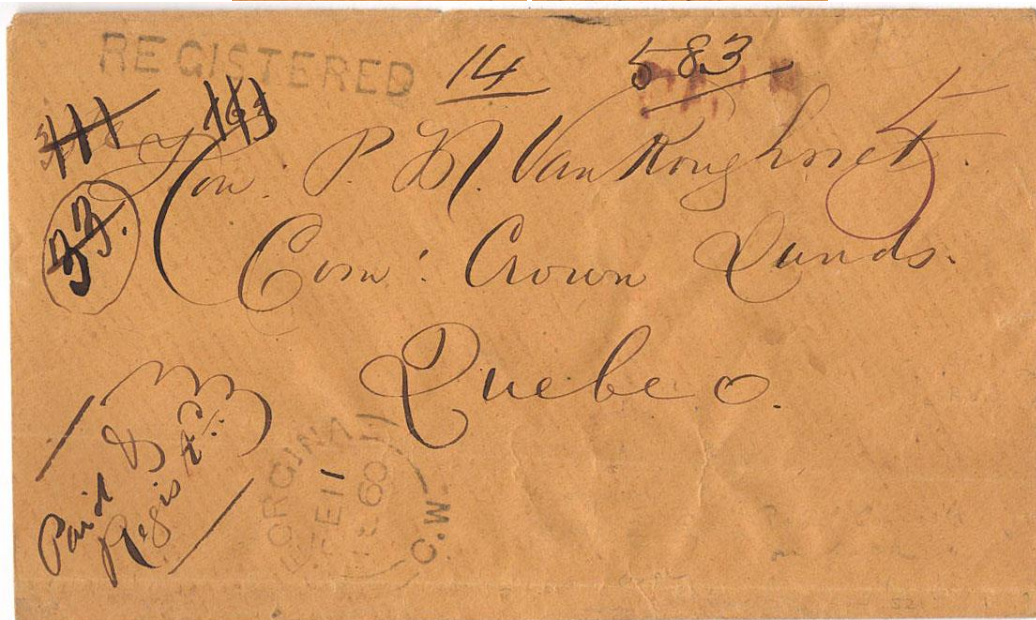 REGISTERED 14 583
PAID 5
Hon: P. M. VanKoughnet.
33.
Com: Crown Lands.
Quebec.
Paid &
Regist'd
GEORGINA
FE 11
1860
C.W